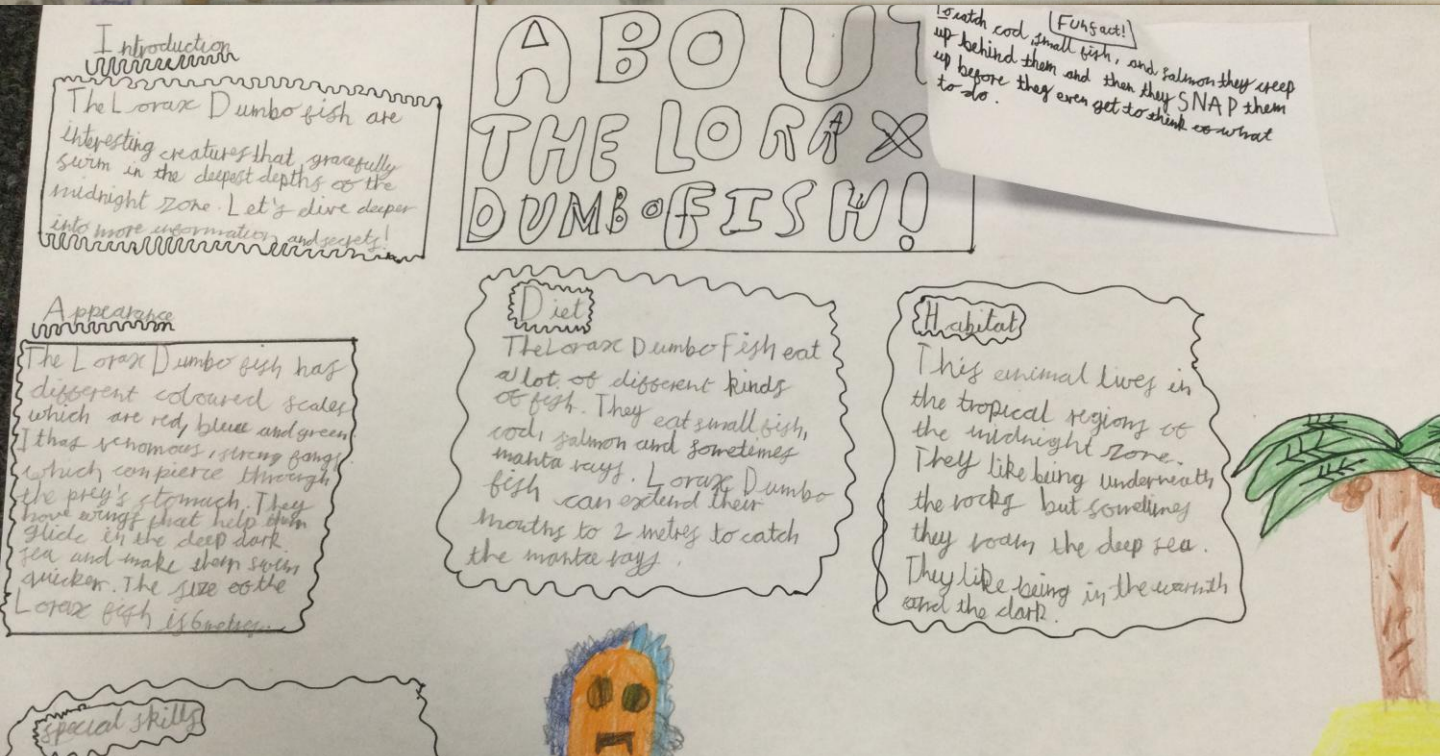 Introduction
The Lorax Dumbo fish are
interesting creatures that gracefully
swim in the deepest depths of the
midnight zone. Let's dive deeper
into more information and secrets!
ABOUT
THE LORAX
DUMBO FISH!
Fun fact!
To catch cod, small fish, and salmon they creep
up behind them and then they SNAP them
up before they even get to think of what
to do.
Appearance
The Lorax Dumbo fish has
different coloured scales
which are red, blue and green
It has venomous, strong fangs
which can pierce through
the prey's stomach. They
have wings that help them
glide in the deep dark
sea and make them swim
quicker. The size of the
Lorax fish is 6 metres
Diet
The Lorax Dumbo Fish eat
a lot of different kinds
of fish. They eat small fish,
cod, salmon and sometimes
manta rays. Lorax Dumbo
fish can extend their
mouths to 2 metres to catch
the manta rays.
Habitat
This animal lives in
the tropical regions of
the midnight zone.
They like being underneath
the rocks but sometimes
they roam the deep sea.
They like being in the warmth
and the dark.
special skills